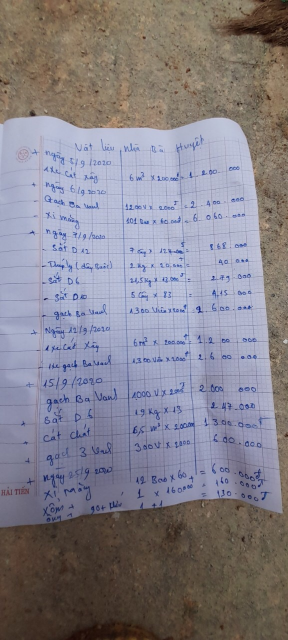 Vật liệu Nhà Bà Huyết
+ Ngày 5/9/2020
1 xe Cát Xây 6m³ x 200.000đ = 1.200.000
+ Ngày 6/9/2020
Gạch Ba Vanh 1200V x 2000đ = 2.400.000
Xi măng 101 Bao x 60.000đ = 6.060.000
+ Ngày 7/9/2020
- Sắt D12 7 cây x 124.000đ = 868.000
2 kg x 20.000đ = 40.000
- Sắt D6
- Sắt D10 5 Cây x 83 = 415.000
- gạch Ba Vanh 1300 Viên x 2000đ = 2.600.000
+ Ngày 12/9/2020
1 xe Cát Xây 6m³ x 200.000đ = 1.200.000
1 xe gạch Ba Vanh 1300 Viên x 2000đ = 2.600.000
+ 15/9/2020
gạch Ba Vanh 1000V x 2000đ 2.000.000
Sắt D6 19 kg x 13 247.000
Cát Chát 6,5 m³ x 200.000 1.300.000
gạch 3 Vanh 300V x 2000 600.000
+ Ngày 25/9/2020
Xi Măng = 600.000đ
1 x 160000 = 160.000đ
1 + 1 = 130.000đ
HẢI TIẾN